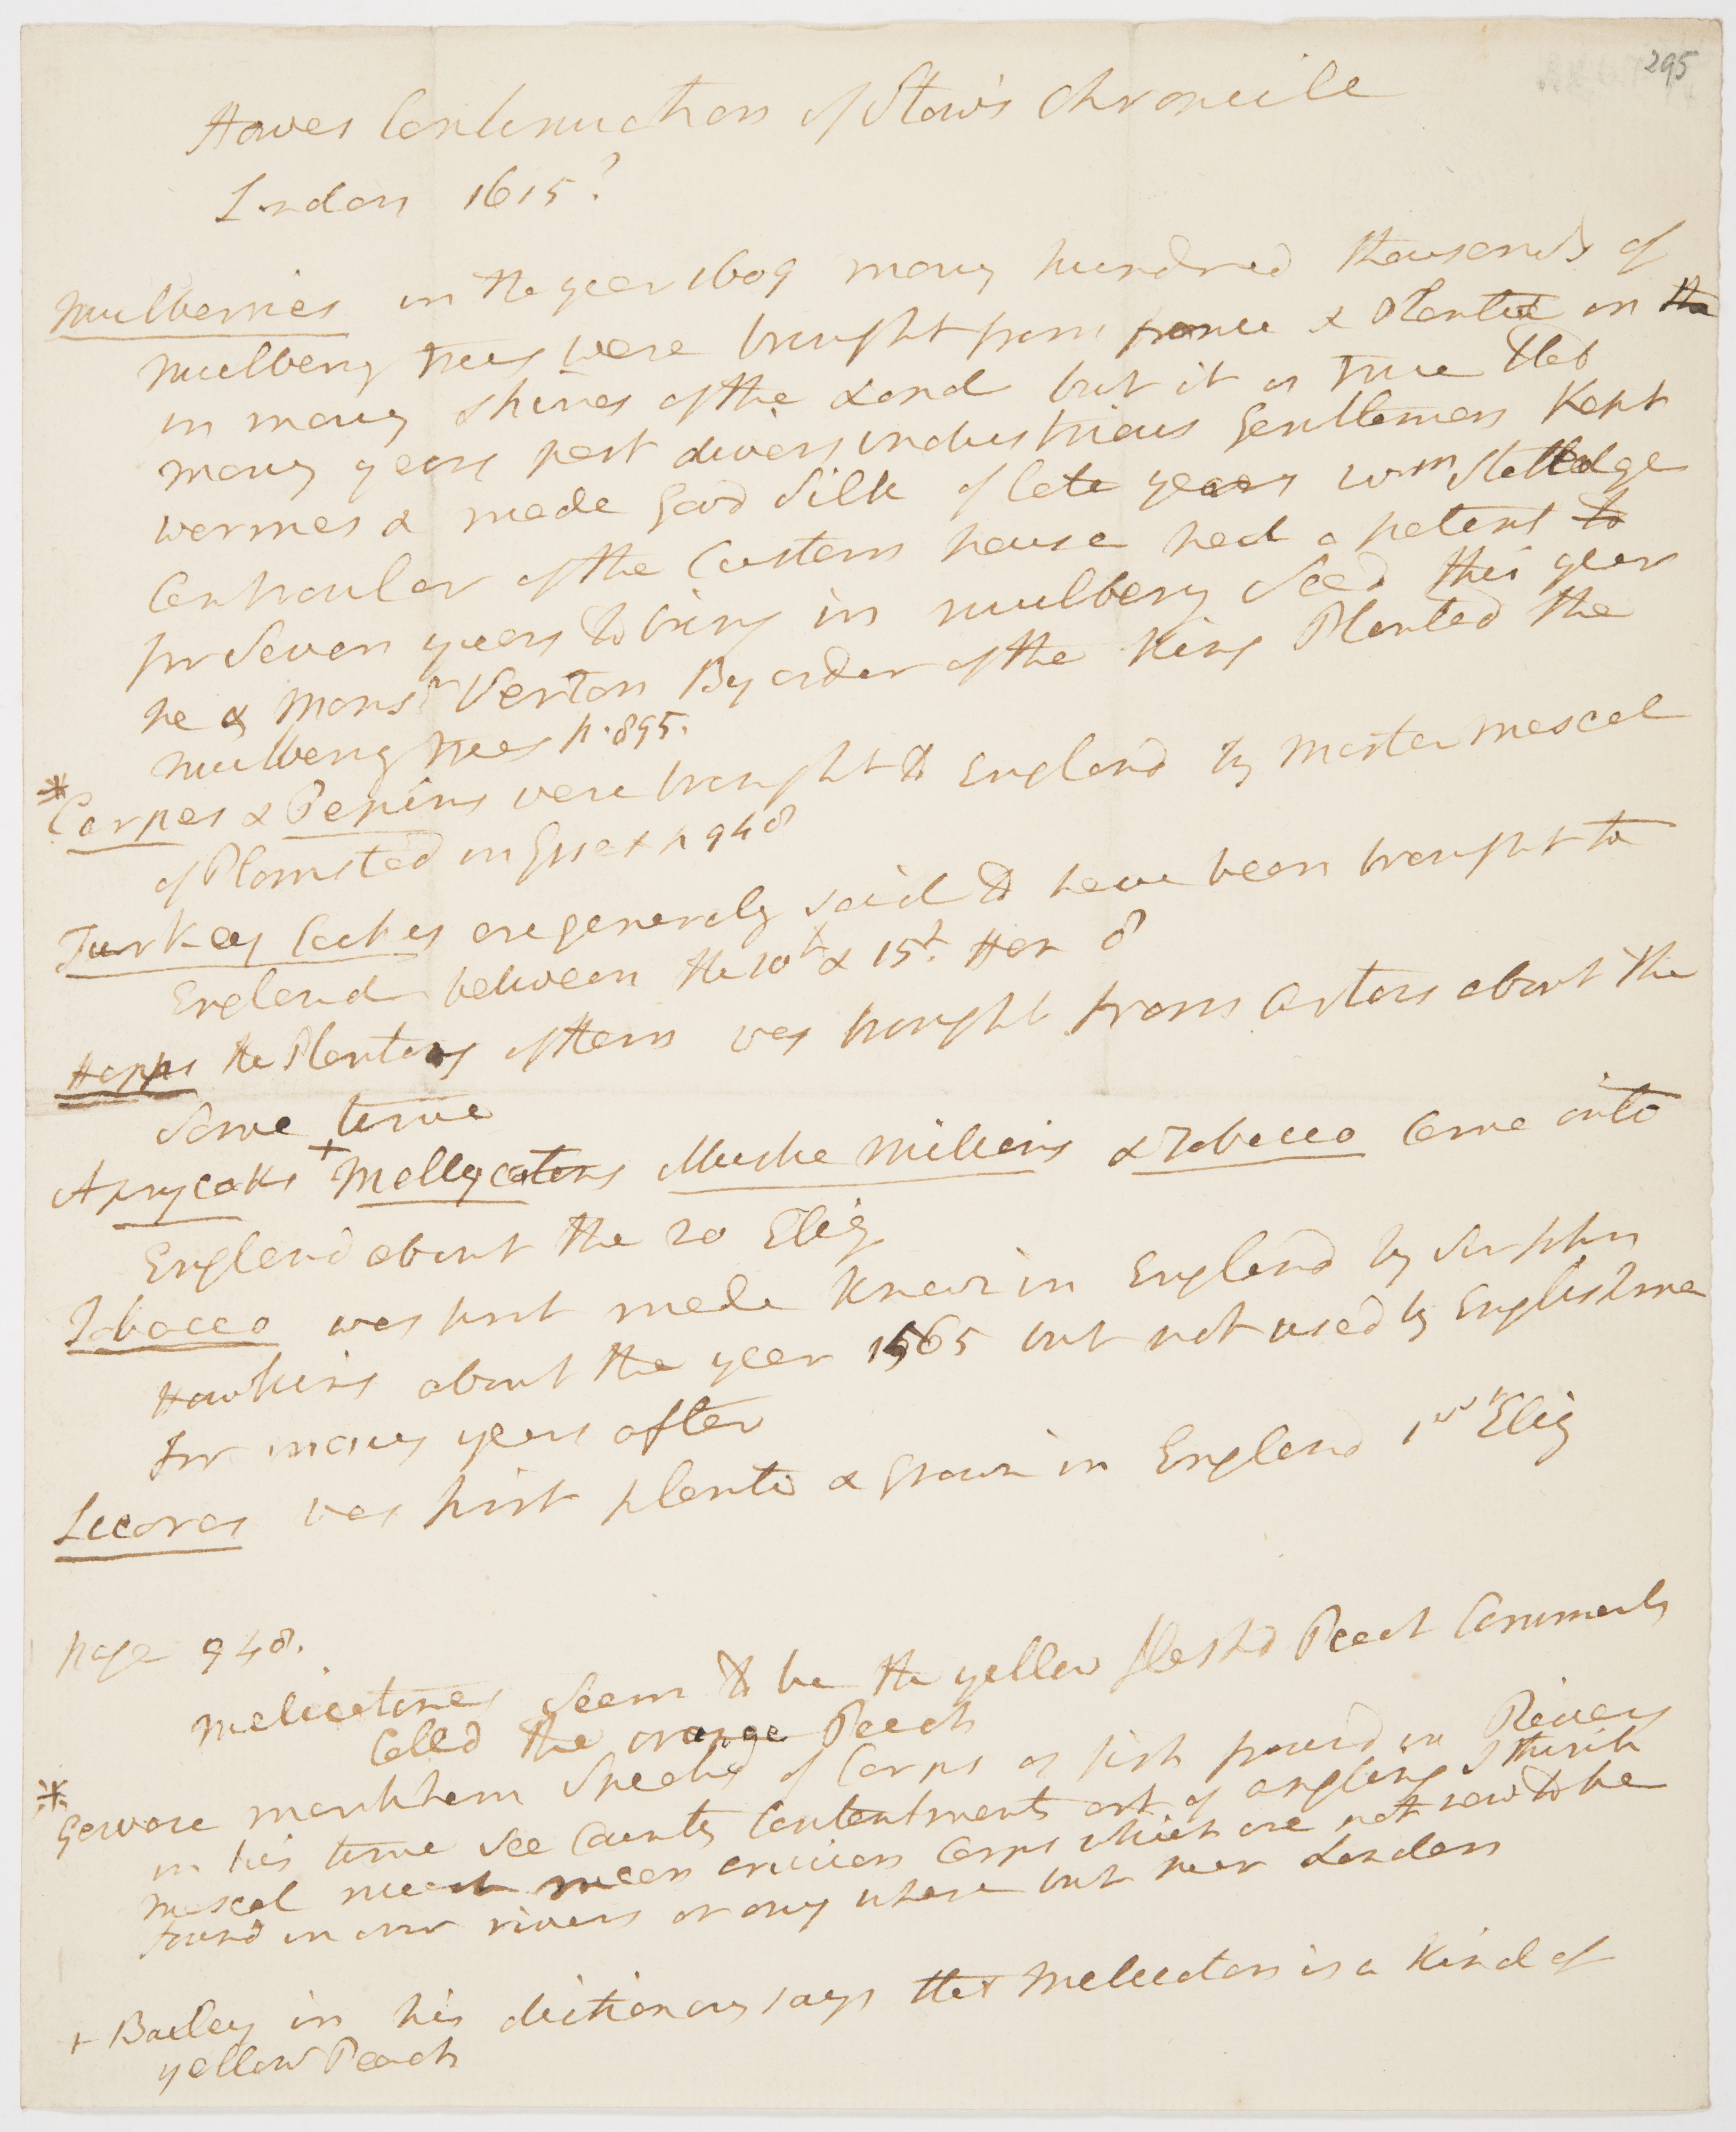 295
Howes Continuation of Stows Chronicle
London 1615?
Mulberries in the year 1609 many hundred thousands of
mulbery trees were brought from france & Planted in the
in many shires of the Land but it is true that
many years past divers industrious Gentlemen Kept
wormes & made Good Silk of late years Wm Stalledge
Controuler of the Custom house had a patent to
for Seven years to bring in mulbery Seed this year
he & Monsr Verton By order of the King Planted the
mulbery trees p. 895.
* Carpes & Pepins were brought to England by Master Mascal
of Plomsted in Essex p 948
Turkey Cockes are generaly said to have been brought to
England between the 10th & 15th Hen 8
Hopps the Planting of them was brought from Artois about the
Same time
Aprycoks + Mellycotons Muske Millions & Tobacco Came into
England about the 20 Eliz
Tobacco was first made known in England by Sir John
Hawkins about the year 1565 but not used by Englishmen
for many years after
Licoras was first planted & Grown in England 1st Eliz
page 948.
melicotones Seem to be the yellow fleshd Peach Commonly
Calld the orange Peach
* Gervase markham Speaks of Carps as fish found in Rivers
in his time see Country Contentments art of angling I think
mascal must mean crucian Carps which are not now to be
found in our rivers or any where but near London
+ Bailey in his dictionary says that Melicoton is a Kind of
yellow Peach